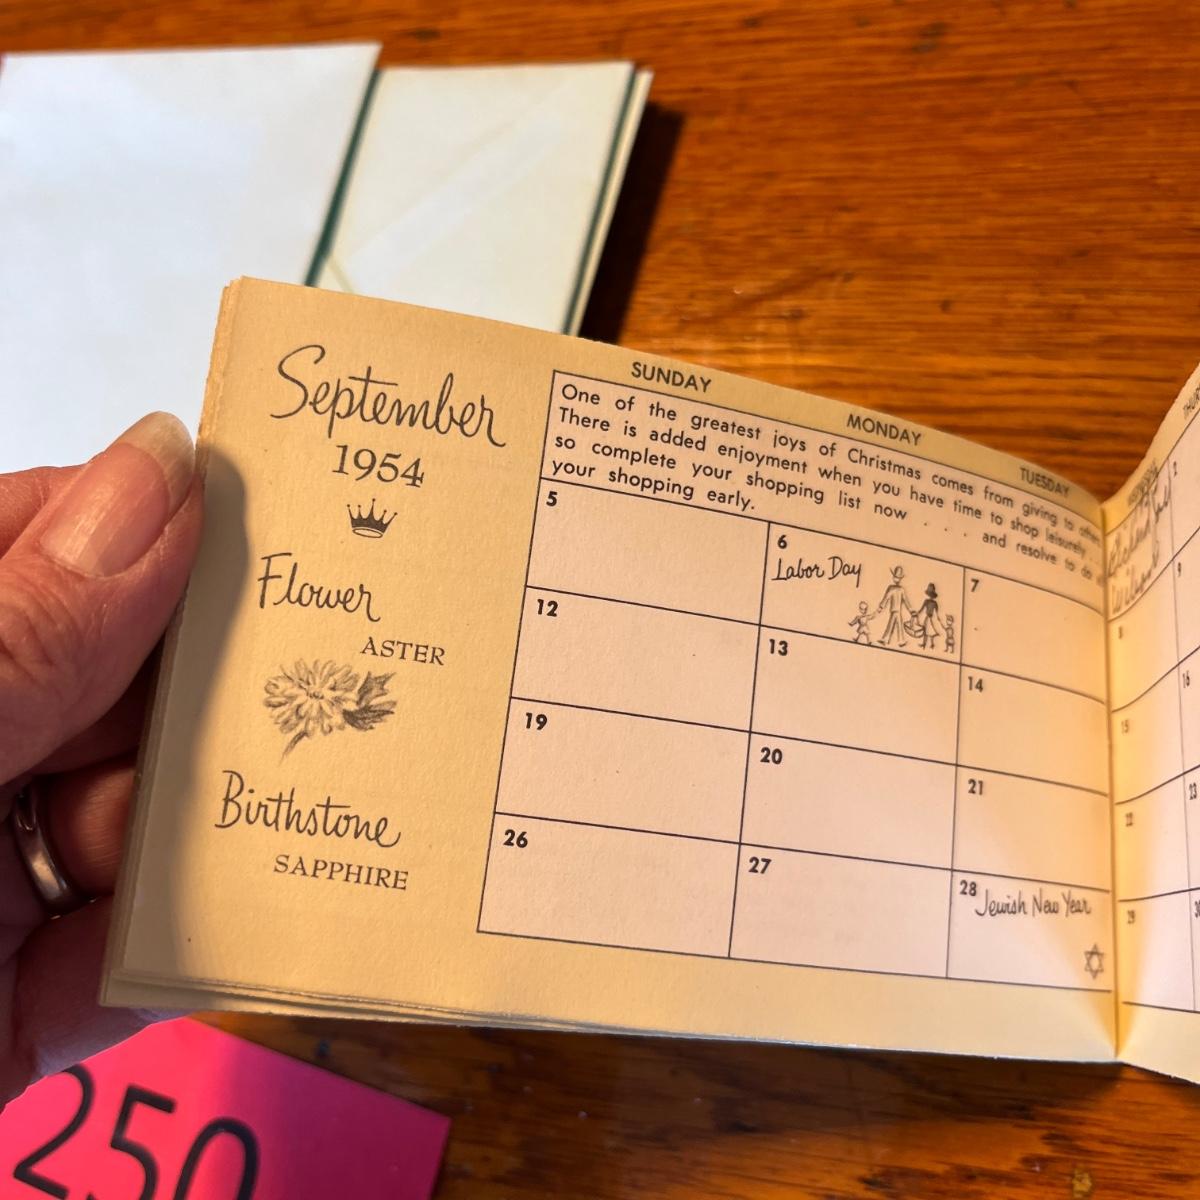 September
1954
Flower
ASTER
Birthstone
SAPPHIRE
SUNDAY
MONDAY
TUESDAY
One of the greatest joys of Christmas comes from giving to
There is added enjoyment when you have time to shop leisurely
so complete your shopping list now . . . and resolve to do
your shopping early.
5
6
Labor Day
7
12
13
14
19
20
21
26
27
28
Jewish New Year
2
8
9
15
16
22
23
29
30
250